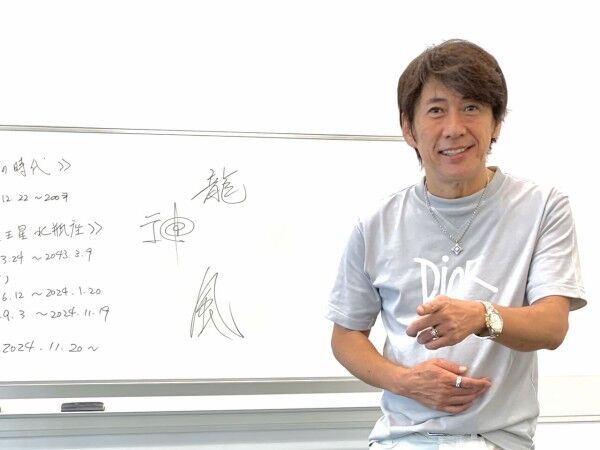 の時代》
12.22～200年
王星水瓶座》
3.24～2043.3.9
)
6.12～2024.1.20
9.3～2024.11.19
2024.11.20～
龍
神
風
DIOR